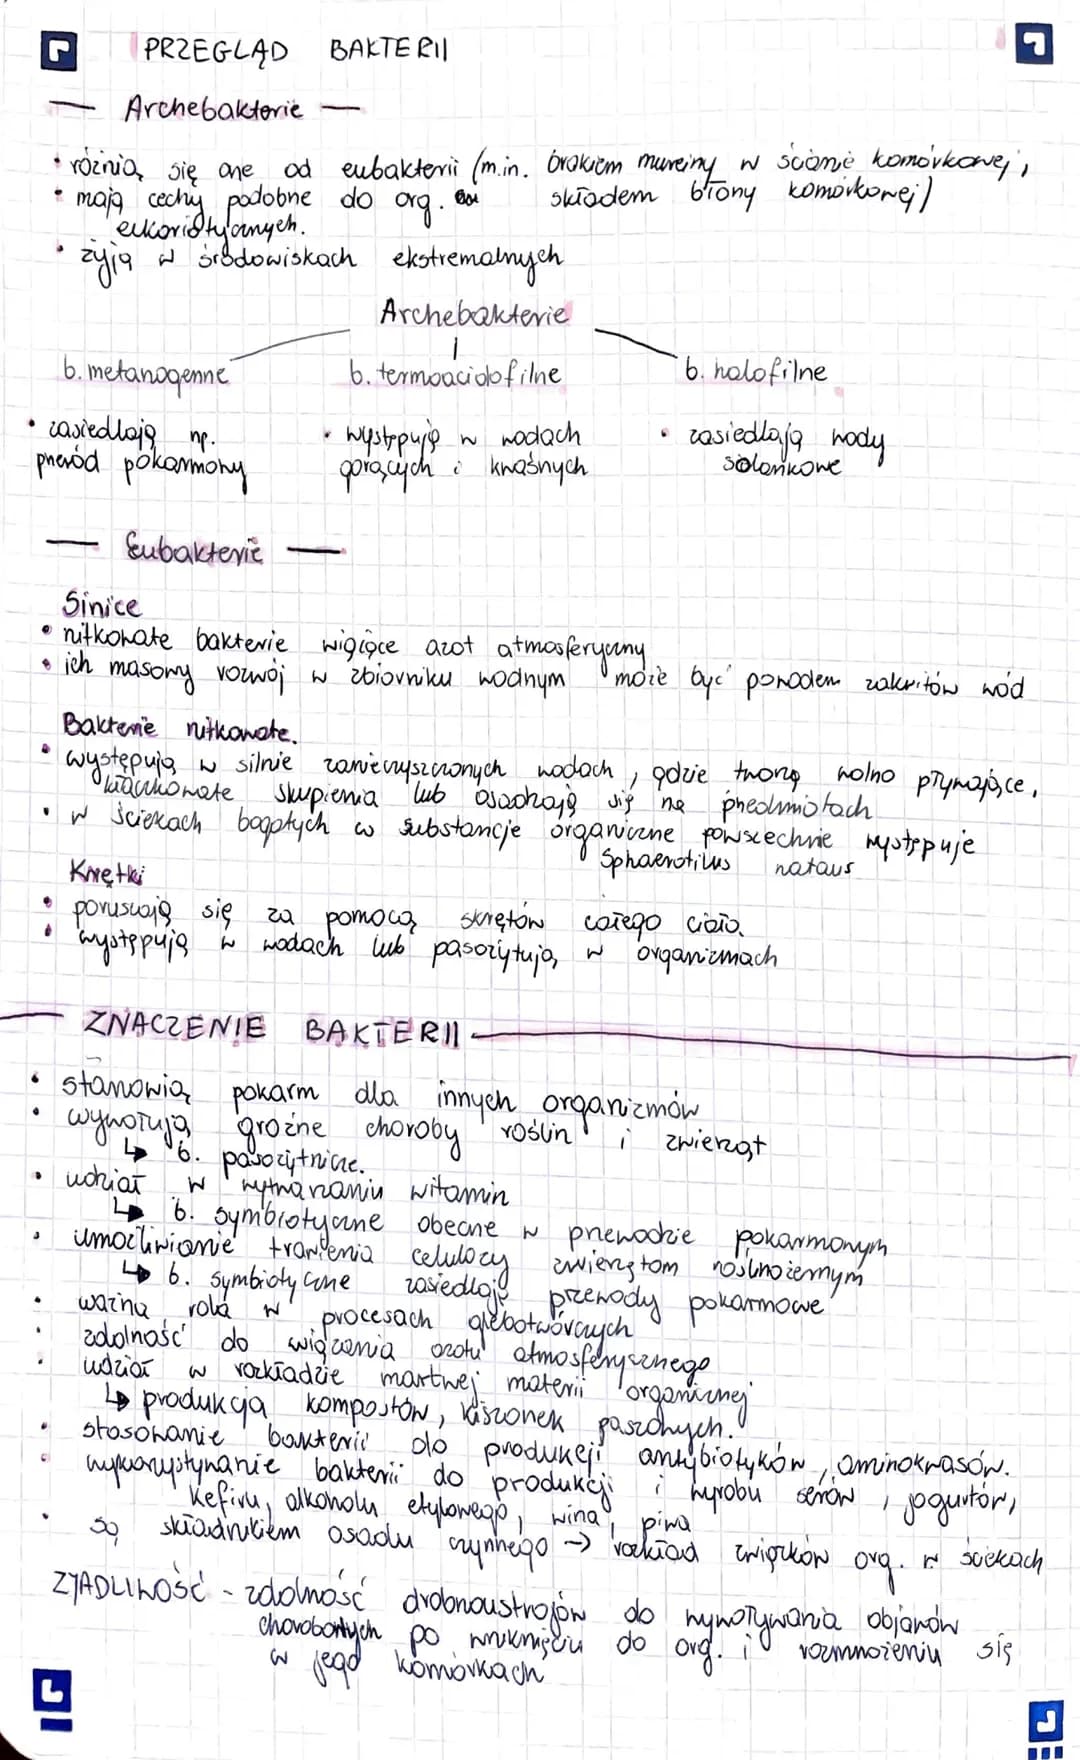 PRZEGLĄD BAKTERII
— Archebakterie —
• różnią się one od eubakterii (m.in. brakiem mureiny w ścianie komórkowej,
składem błony komórkowej)
• mają cechy podobne do org.
eukariotycznych.
• żyją w środowiskach ekstremalnych
Archebakterie
b. metanogenne b. termoacidofilne b. halofilne
• zasiedlają np. • występują w wodach • zasiedlają wody
przewód pokarmowy gorących i kwaśnych solankowe
— Eubakterie —
Sinice
• nitkowate bakterie wiążące azot atmosferyczny
• ich masowy rozwój w zbiorniku wodnym może być powodem zakwitów wód
Bakterie nitkowate.
• występują w silnie zanieczyszczonych wodach, gdzie tworzą wolno pływające,
kłaczkowate skupienia lub osadzają się na przedmiotach
• w ściekach bogatych w substancje organiczne powszechnie występuje
Sphaerotilus natans
Krętki
• poruszają się za pomocą skrętów całego ciała.
• występują w wodach lub pasożytują w organizmach
— ZNACZENIE BAKTERII —
• stanowią pokarm dla innych organizmów
• wywołują groźne choroby roślin i zwierząt
↳ b. pasożytnicze.
• udział w wytwarzaniu witamin
↳ b. symbiotyczne obecne w przewodzie pokarmowym
• umożliwianie trawienia celulozy zwierzętom roślinożernym
↳ b. symbiotyczne zasiedlają przewody pokarmowe
• ważna rola w procesach glebotwórczych
• zdolność do wiązania azotu atmosferycznego
• udział w rozkładzie martwej materii organicznej
↳ produkcja kompostów, kiszonek paszowych.
• stosowanie bakterii do produkcji antybiotyków, aminokwasów.
• wykorzystywanie bakterii do produkcji i wyrobu serów, jogurtów,
kefiru, alkoholu etylowego, wina, piwa
• są składnikiem osadu czynnego → rozkład związków org. w ściekach
ZJADLIWOŚĆ - zdolność drobnoustrojów do wywoływania objawów
chorobowych po wniknięciu do org. i rozmnożeniu się
w jego komórkach